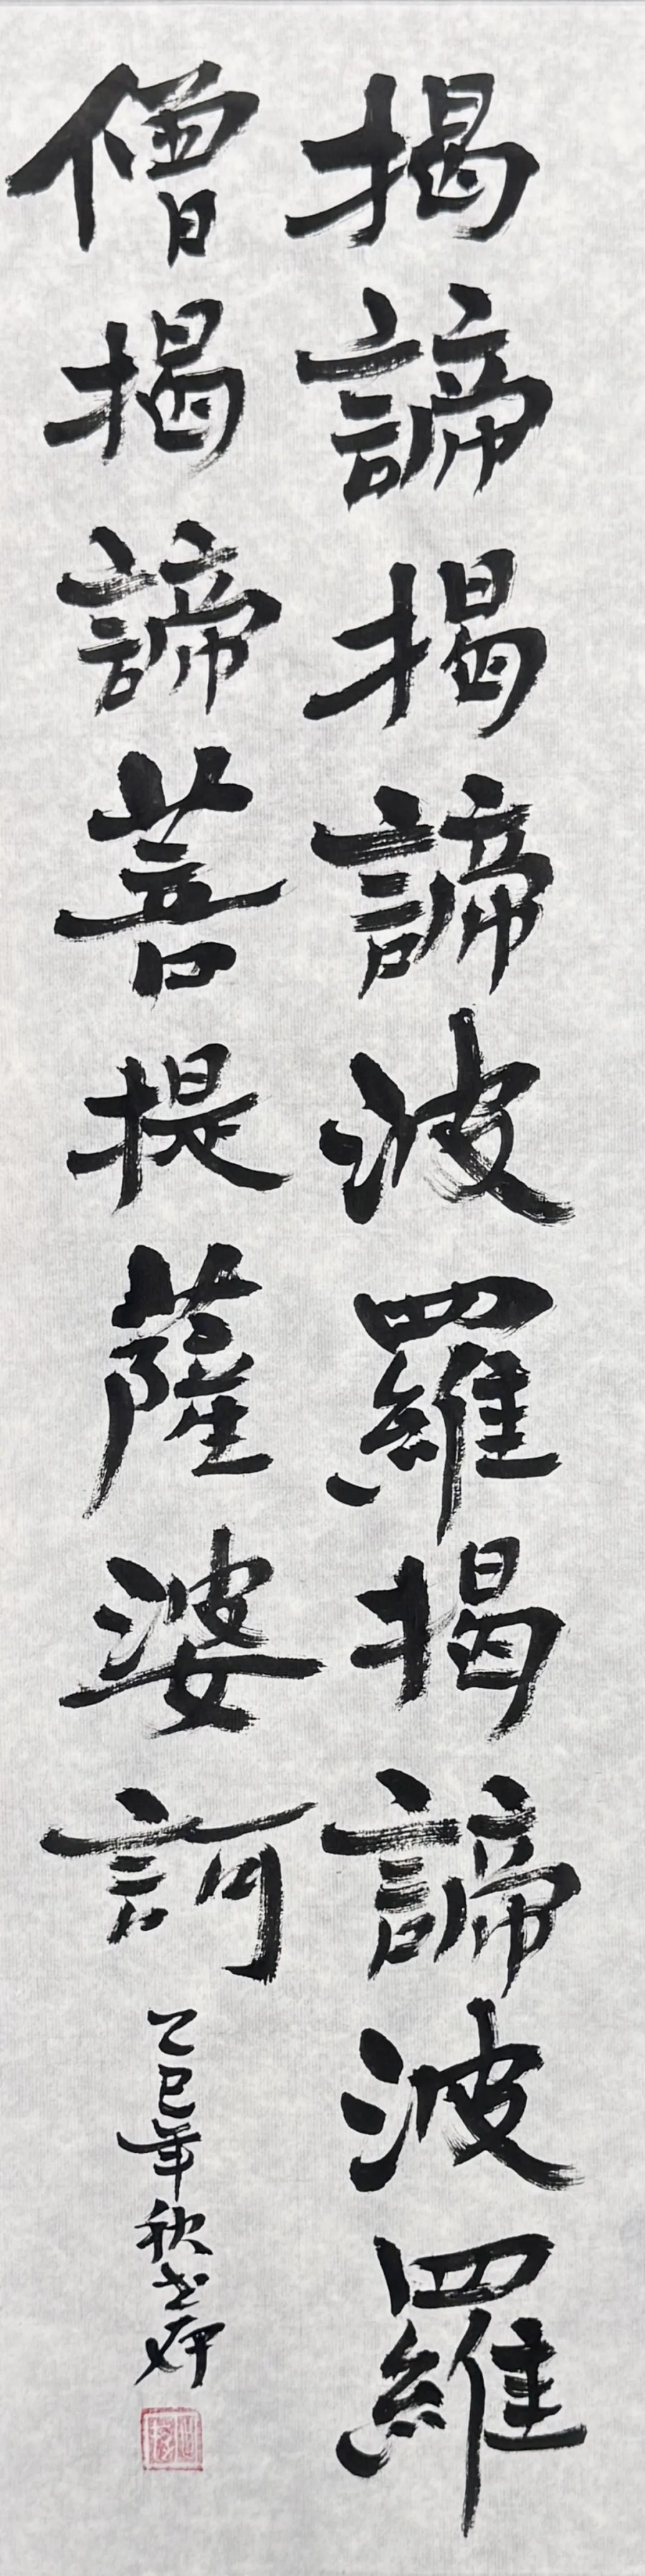 揭諦揭諦波羅揭諦波羅
僧揭諦菩提薩婆訶
乙巳年秋書妍